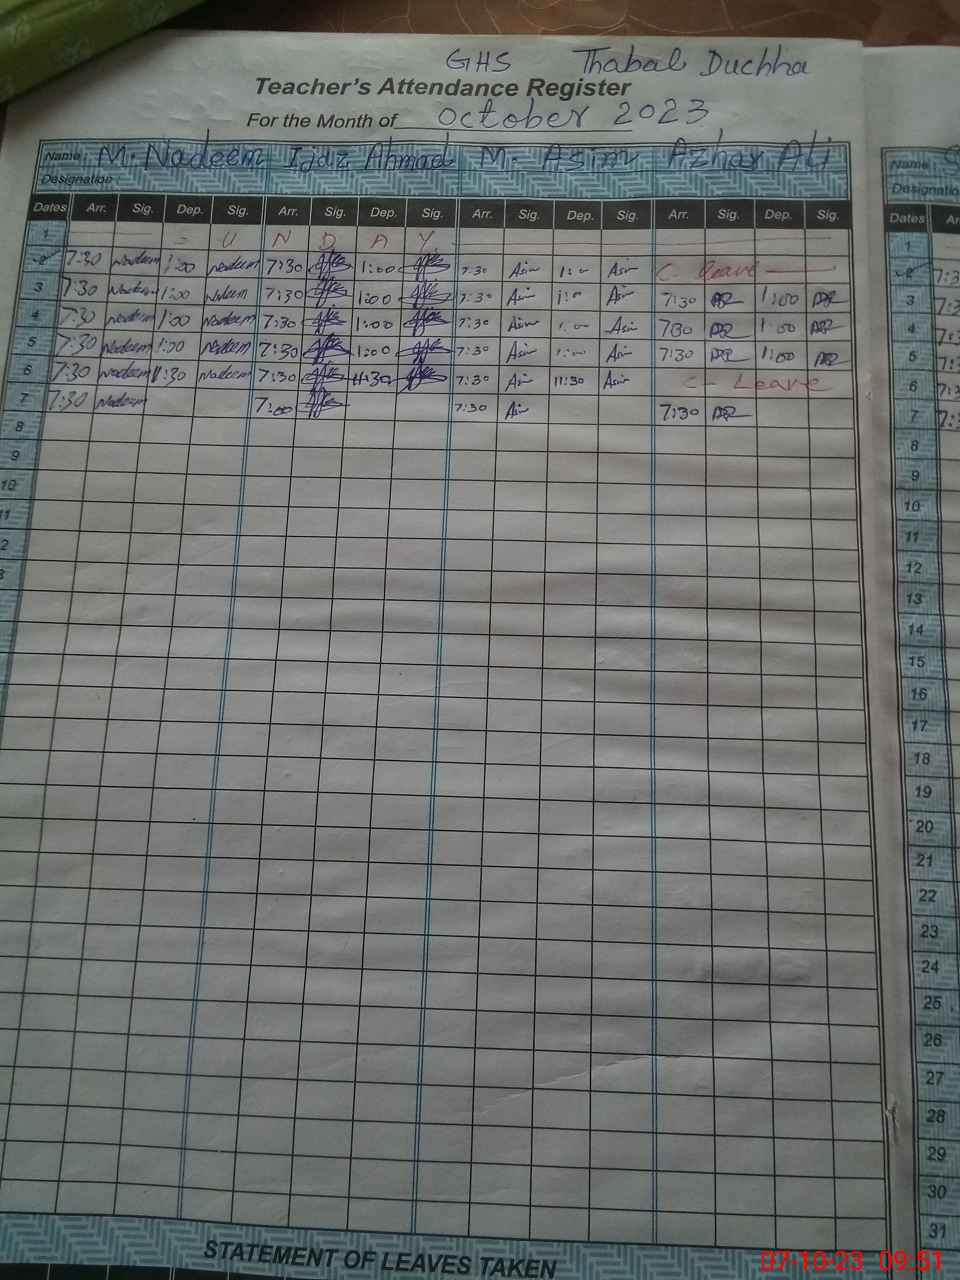 GHS Thabal Duchha
Teacher's Attendance Register
For the Month of October 2023
Name: M. Nadeem Ijaz Ahmad M. Asim Azhar Ali Name
Designation: Designatio
Dates Arr. Sig. Dep. Sig. Arr. Sig. Dep. Sig. Arr. Sig. Dep. Sig. Arr. Sig. Dep. Sig. Dates
1 S U N D A Y 1
2 7:30 Nadeem 1:00 Nadeem 7:30 1:00 7:30 Asim 1:00 Asim C. leave 2
3 7:30 Nadeem 1:00 Nadeem 7:30 1:00 7:30 Asim 1:00 Asim 7:30 1:00 3
4 7:30 Nadeem 1:00 Nadeem 7:30 1:00 7:30 Asim 1:00 Asim 7:30 1:00 4
5 7:30 Nadeem 1:00 Nadeem 7:30 1:00 7:30 Asim 1:00 Asim 7:30 1:00 5
6 7:30 Nadeem 11:30 Nadeem 7:30 11:30 7:30 Asim 11:30 Asim C- Leave 6
7 7:30 Nadeem 7:00 7:30 Asim 7:30 7
8 8
9 9
10 10
11 11
2 12
3 13
14
15
16
17
18
19
20
21
22
23
24
25
26
27
28
29
30
31
STATEMENT OF LEAVES TAKEN
07-10-23 09:51